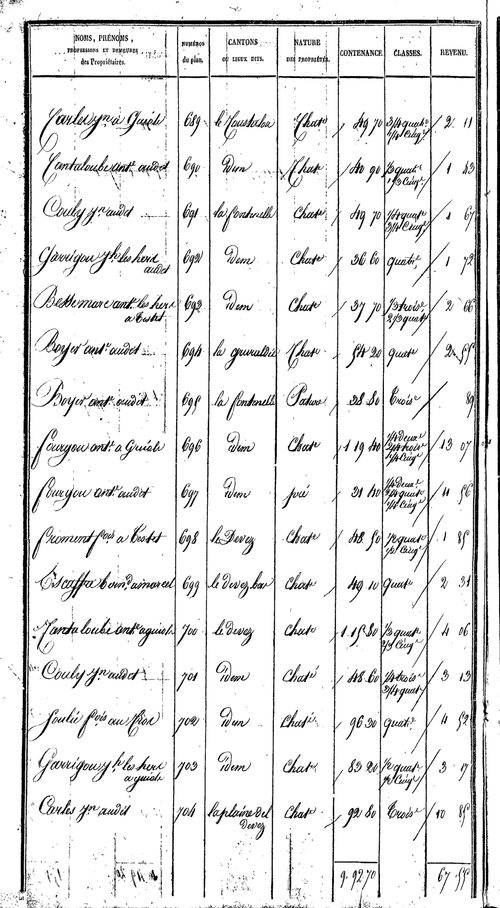 NOMS, PRÉNOMS,
PROFESSIONS ET DEMEURES
des Propriétaires.
NUMÉROS
du plan.
CANTONS
OU LIEUX DITS.
NATURE
DES PROPRIÉTÉS.
CONTENANCE.
CLASSES.
REVENU.
Carles jn a Guiole 689 le Coustalou Chate 49 70 3/4 quate 1/4 Cinqe 2 11
Cantaloube ante audot 690 Idem Chate 40 90 1/3 quate 2/3 Cinqe 1 43
Couly jn audot 691 la fontenelle Chate 49 70 1/4 quate 3/4 Cinqe 1 67
Garrigou jh les hers audot 692 Idem Chate 36 60 quate 1 72
Bessemare ante les hers a Testet 693 Idem Chate 37 70 1/3 troise 2/3 quate 2 66
Boyer ante audot 694 Chate 54 20 quate 2 55
Boyer ante audit 695 la fontenelle Patus 28 80 Trois 89
fourgou ante a Guiole 696 Idem Chate 1 19 40 1/4 deuxe 2/4 troise 1/4 Cinqe 13 07
fourgou ante audot 697 Idem pré 31 40 1/4 deuxe 2/4 quate 1/4 Cinqe 4 56
froment fois a Testet 698 le Devez Chate 48 50 1/2 quate 1/2 Cinqe 1 85
Escoffre 699 le devez bas Chate 49 10 quate 2 31
Cantaloube ante aguiole 700 le devez Chate 1 15 80 1/3 quate 2/3 Cinqe 4 06
Couly jn audot 701 Idem Chaté 48 60 1/4 troise 3/4 quate 3 13
Soulié fois au 702 Idem Chaté 96 30 quate 4 52
Garrigou jh les hers a guiole 703 Idem Chate 83 20 1/2 quate 1/2 Cinqe 3 17
Carles jn audit 704 la plaine del Devez Chate 92 80 Trois 10 85
9. 92 70 67 55